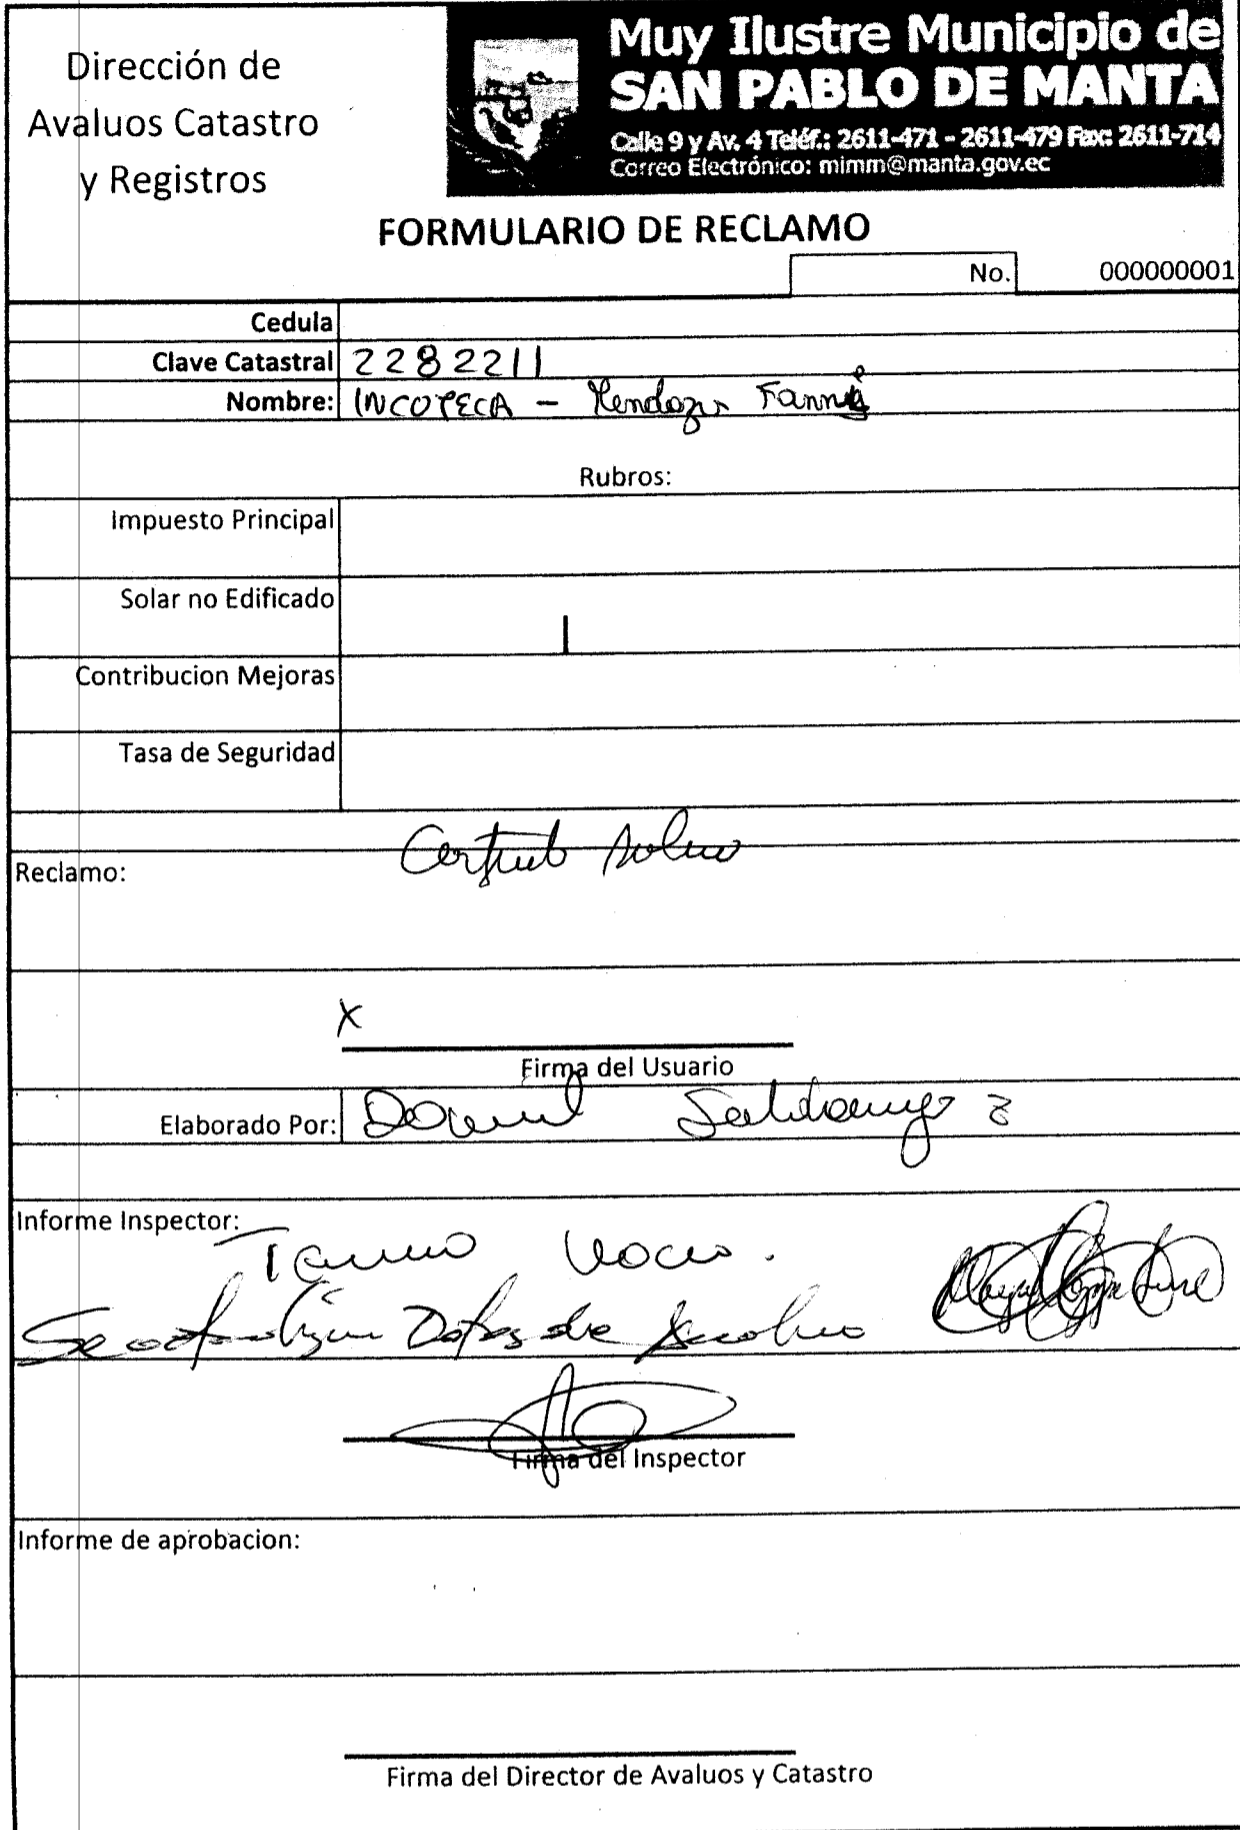 Dirección de
Avaluos Catastro
y Registros
Muy Ilustre Municipio de
SAN PABLO DE MANTA
Calle 9 y Av. 4 Teléf.: 2611-471 - 2611-479 Fax: 2611-714
Correo Electrónico: mimm@manta.gov.ec
FORMULARIO DE RECLAMO
No. 000000001
Cedula
Clave Catastral 2282211
Nombre: INCOTECA - Mendoza
Rubros:
Impuesto Principal
Solar no Edificado
Contribucion Mejoras
Tasa de Seguridad
Reclamo:
X
Firma del Usuario
Elaborado Por:
Informe Inspector:
Datos de
Firma del Inspector
Informe de aprobacion:
Firma del Director de Avaluos y Catastro